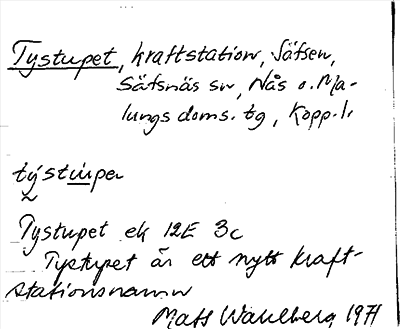 Tystupet, kraftstation, Säfsen,
Säfsnäs sn, Nås o. Ma-
lungs doms. tg, Kopp. l.
týstùpea
Tystupet ek 12E 3c
Tystupet är ett nytt kraft-
stationsnamn
Mats Wahlberg 1971